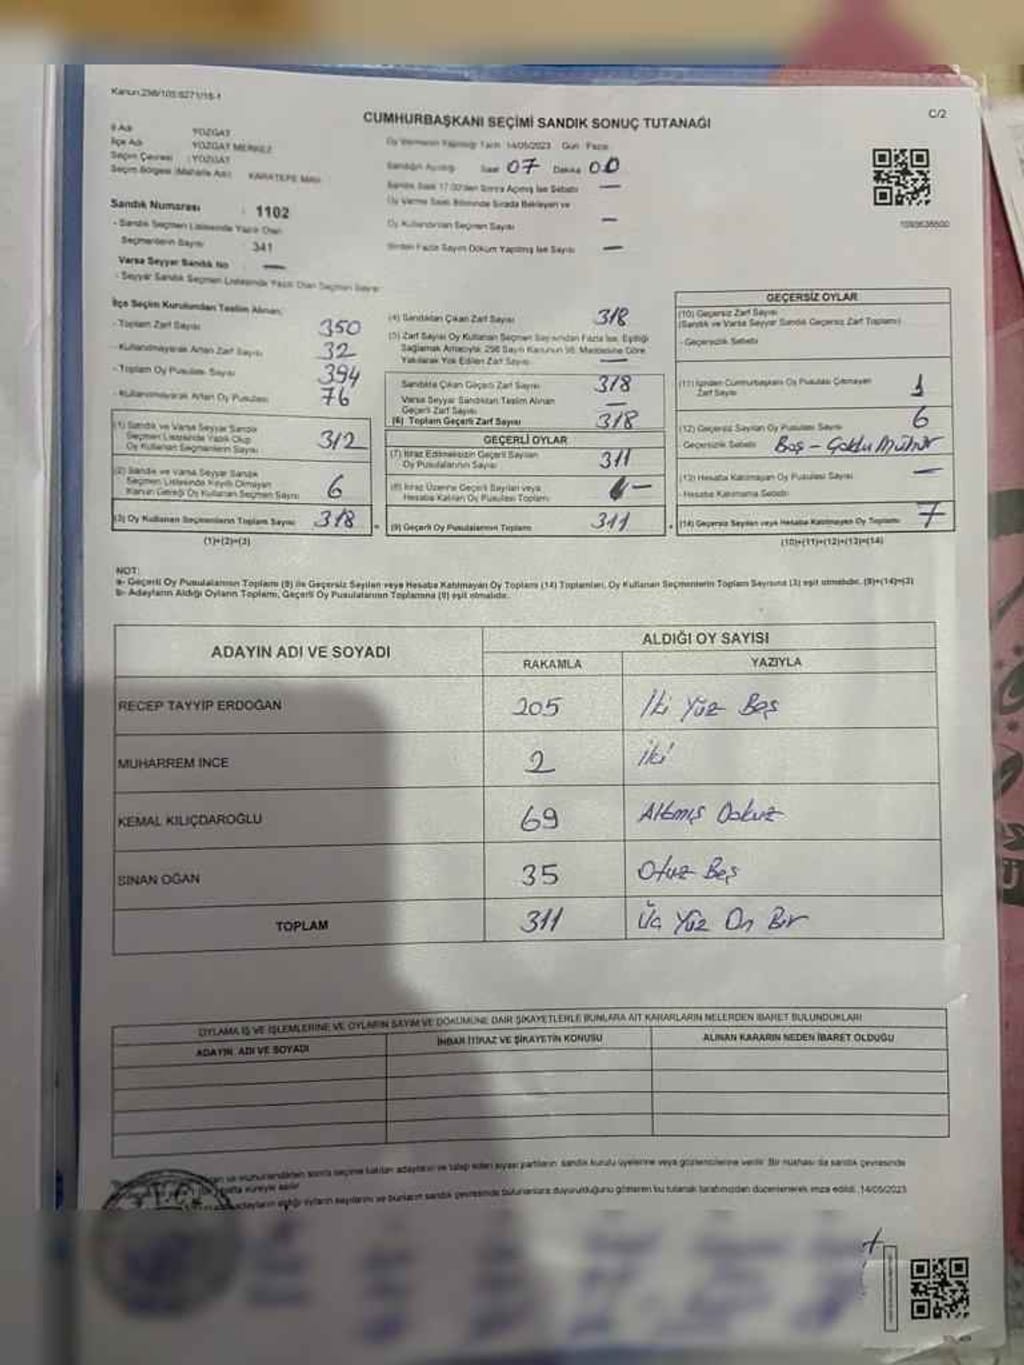 Kanun:298/105;6271/15-1
C/2
CUMHURBAŞKANI SEÇİMİ SANDIK SONUÇ TUTANAĞI
İl Adı YOZGAT
İlçe Adı YOZGAT MERKEZ
Seçim Çevresi : YOZGAT
Seçim Bölgesi (Mahalle Adı) KARATEPE MAH.
Sandık Numarası : 1102
- Sandık Seçmen Listesinde Yazılı Olan
Seçmenlerin Sayısı 341
Varsa Seyyar Sandık No —
- Seyyar Sandık Seçmen Listesinde Yazılı Olan Seçmen Sayısı
Oy Vermenin Yapıldığı Tarih 14/05/2023 Gün Pazar
Sandığın Açıldığı Saat 07 Dakika 00
Sandık Saat 17.00'den Sonra Açılmış İse Sebebi —
Oy Verme Saati Bitiminde Sırada Bekleyen ve
Oy Kullandırılan Seçmen Sayısı —
Birden Fazla Sayım Döküm Yapılmış İse Sayısı —
İlçe Seçim Kurulundan Teslim Alınan;
- Toplam Zarf Sayısı 350
- Kullanılmayarak Artan Zarf Sayısı 32
- Toplam Oy Pusulası Sayısı 394
- Kullanılmayarak Artan Oy Pusulası 76
(1) Sandık ve Varsa Seyyar Sandık
Seçmen Listesinde Yazılı Olup
Oy Kullanan Seçmenlerin Sayısı 312
(2) Sandık ve Varsa Seyyar Sandık
Seçmen Listesinde Kayıtlı Olmayan
Kanun Gereği Oy Kullanan Seçmen Sayısı 6
(3) Oy Kullanan Seçmenlerin Toplam Sayısı 318
(1)+(2)=(3)
(4) Sandıktan Çıkan Zarf Sayısı 318
(5) Zarf Sayısı Oy Kullanan Seçmen Sayısından Fazla İse, Eşitliği
Sağlamak Amacıyla; 298 Sayılı Kanunun 98. Maddesine Göre
Yakılarak Yok Edilen Zarf Sayısı —
Sandıkta Çıkan Geçerli Zarf Sayısı 318
Varsa Seyyar Sandıktan Teslim Alınan
Geçerli Zarf Sayısı —
(6) Toplam Geçerli Zarf Sayısı 318
GEÇERLİ OYLAR
(7) İtiraz Edilmeksizin Geçerli Sayılan
Oy Pusulalarının Sayısı 311
(8) İtiraz Üzerine Geçerli Sayılan veya
Hesaba Katılan Oy Pusulası Toplamı —
(9) Geçerli Oy Pusulalarının Toplamı 311
GEÇERSİZ OYLAR
(10) Geçersiz Zarf Sayısı
(Sandık ve Varsa Seyyar Sandık Geçersiz Zarf Toplamı)
- Geçersizlik Sebebi
(11) İçinden Cumhurbaşkanı Oy Pusulası Çıkmayan
Zarf Sayısı 1
(12) Geçersiz Sayılan Oy Pusulası Sayısı 6
Geçersizlik Sebebi Boş - Çoklu Mühür
(13) Hesaba Katılmayan Oy Pusulası Sayısı —
- Hesaba Katılmama Sebebi
(14) Geçersiz Sayılan veya Hesaba Katılmayan Oy Toplamı 7
(10)+(11)+(12)+(13)=(14)
NOT:
a- Geçerli Oy Pusulalarının Toplamı (9) ile Geçersiz Sayılan veya Hesaba Katılmayan Oy Toplamı (14) Toplamları, Oy Kullanan Seçmenlerin Toplam Sayısına (3) eşit olmalıdır. (9)+(14)=(3)
b- Adayların Aldığı Oyların Toplamı, Geçerli Oy Pusulalarının Toplamına (9) eşit olmalıdır.
ADAYIN ADI VE SOYADI
ALDIĞI OY SAYISI
RAKAMLA YAZIYLA
RECEP TAYYİP ERDOĞAN 205 İki Yüz Beş
MUHARREM İNCE 2 İki
KEMAL KILIÇDAROĞLU 69 Altmış Dokuz
SİNAN OĞAN 35 Otuz Beş
TOPLAM 311 Üç Yüz On Bir
OYLAMA İŞ VE İŞLEMLERİNE VE OYLARIN SAYIM VE DÖKÜMÜNE DAİR ŞİKAYETLERLE BUNLARA AİT KARARLARIN NELERDEN İBARET BULUNDUKLARI
ADAYIN ADI VE SOYADI İHBAR İTİRAZ VE ŞİKAYETİN KONUSU ALINAN KARARIN NEDEN İBARET OLDUĞU
sonra seçime katılan adayların ve talep eden siyasi partilerin sandık kurulu üyelerine veya gözlemcilerine verilir. Bir nüshası da sandık çevresinde
hafta süreyle asılır.
adayların aldığı oyların sayılarını ve bunların sandık çevresinde bulunanlara duyurulduğunu gösteren bu tutanak tarafımızdan düzenlenerek imza edildi. 14/05/2023